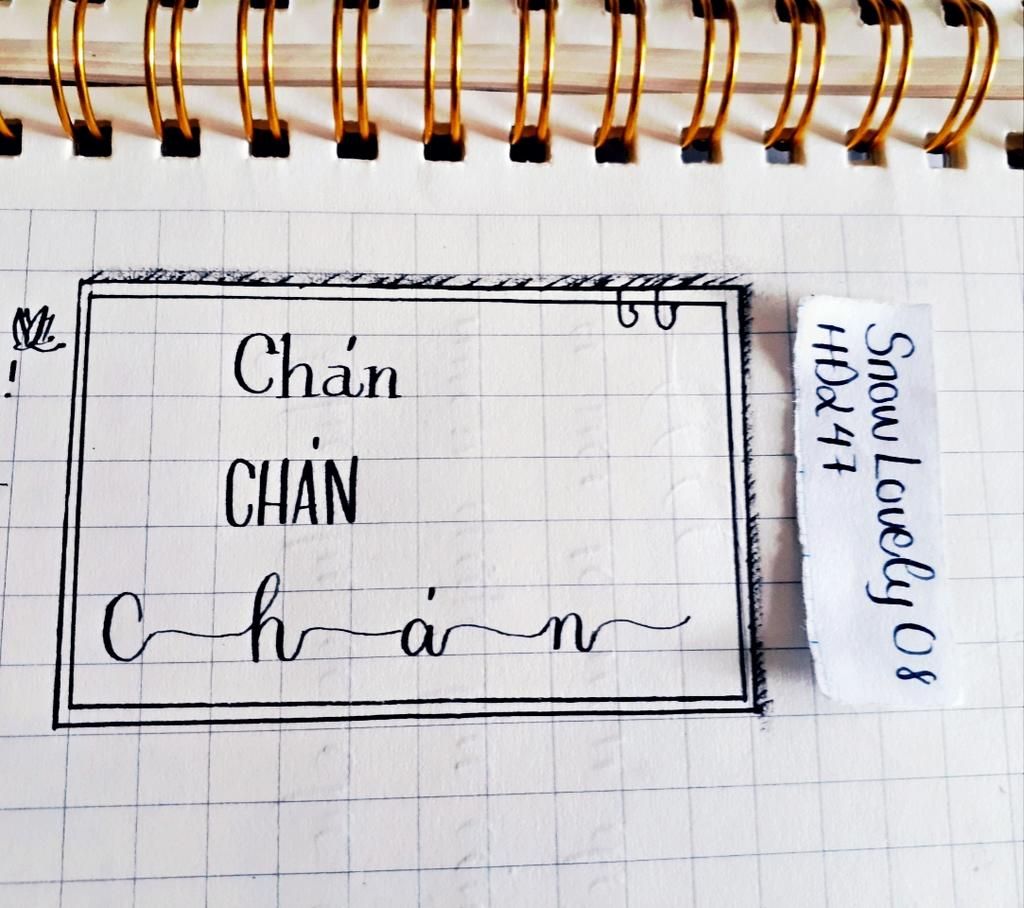 Chán
CHÁN
Chán
Snow Lovely 08
HDα247
!